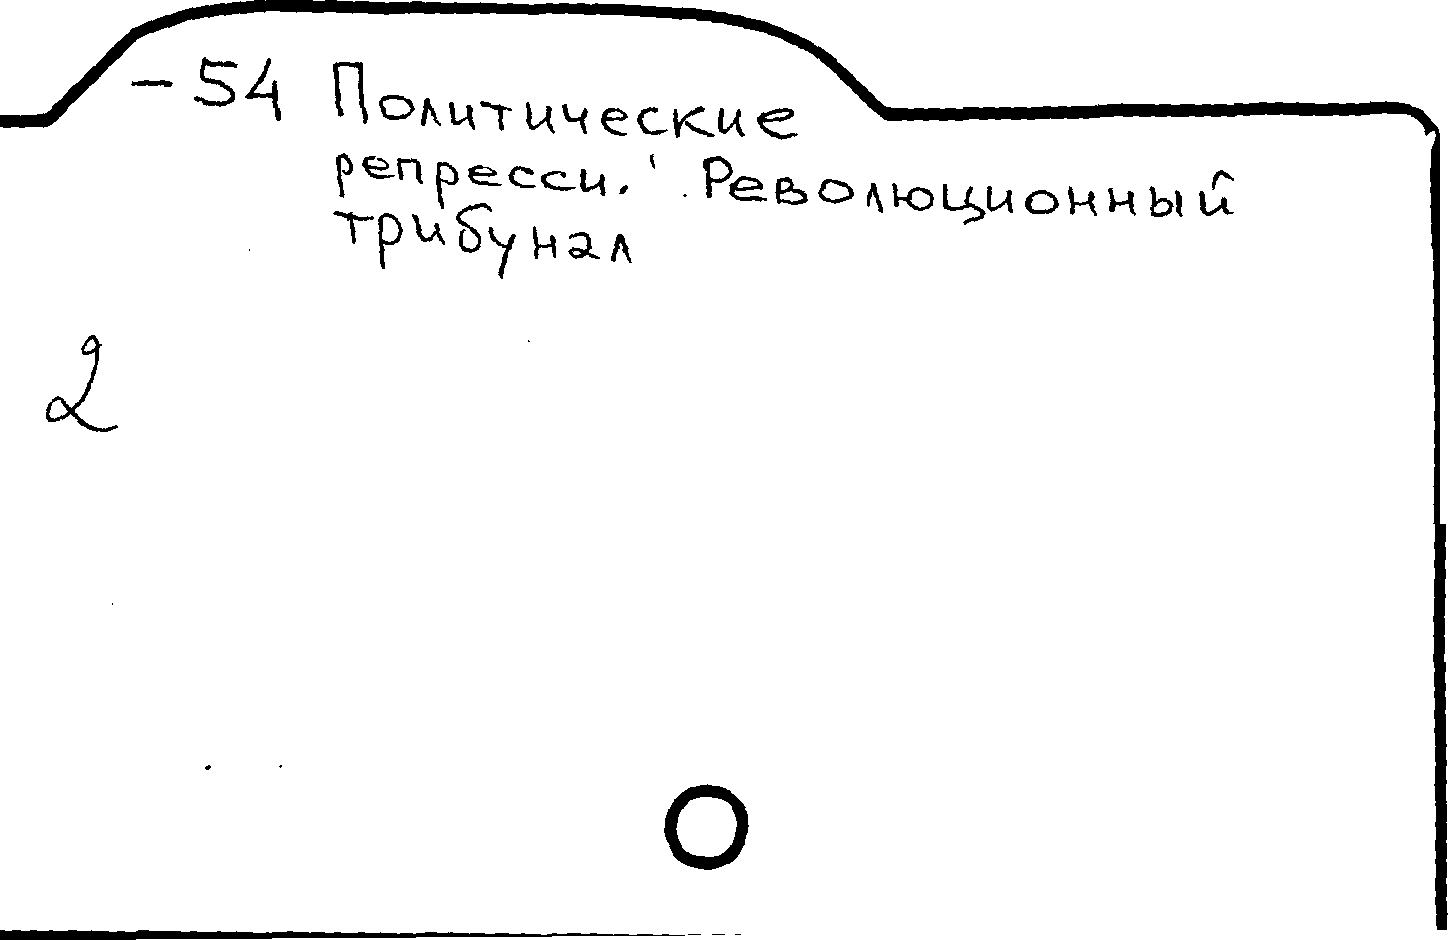 -54 Политические
репресси. Революционный
трибунал
2